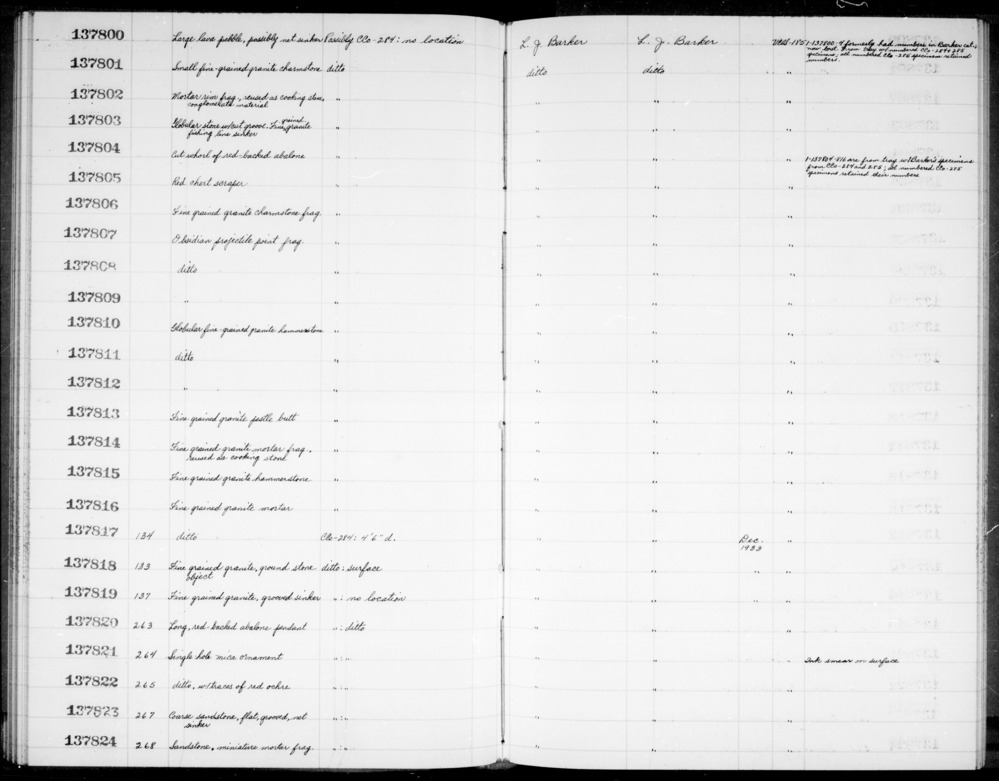 137800 Large lava pebble, possibly net sinker Possibly CCo-284: no location L. J. Barker L. J. Barker
1-137800-4 formerly had numbers in Barker cat.,
now lost. From tray w/ numbered CCo-284 & 285
specimens; all numbered CCo-285 specimens retained
numbers.
137801 Small fine-grained granite charmstone ditto ditto ditto "
137802 Mortar rim frag., reused as cooking stone, " " " "
conglomerate material
137803 Globular stone w/out groove. Fine grained granite " " " "
fishing line sinker
137804 Cut whorl of red-backed abalone " " " " 1-137804-816 are from tray w/ Barker's specimens
from CCo-284 and 285; all numbered CCo-285
specimens retained their numbers
137805 Red chert scraper " " " "
137806 Fine grained granite charmstone frag. " " " "
137807 Obsidian projectile point frag. " " " "
137808 ditto " " " "
137809 " " " " "
137810 Globular fine-grained granite hammerstone " " " "
137811 ditto " " " "
137812 " " " " "
137813 Fine grained granite pestle butt " " " "
137814 Fine grained granite mortar frag., " " " "
reused as cooking stone
137815 Fine grained granite hammerstone " " " "
137816 Fine grained granite mortar " " " "
137817 134 ditto CCo-284: 4'6" d. " " Dec. "
1933
137818 133 Fine grained granite, ground stone ditto: surface " " " "
object
137819 137 Fine grained granite, grooved sinker ": no location " " " "
137820 263 Long, red-backed abalone pendant ": ditto " " "
137821 264 Single hole mica ornament ": " " " " Ink smear on surface
137822 265 ditto, w/traces of red ochre ": " " " "
137823 267 Coarse sandstone, flat, grooved, net ": " " " "
sinker
137824 268 Sandstone, miniature mortar frag. " " " "